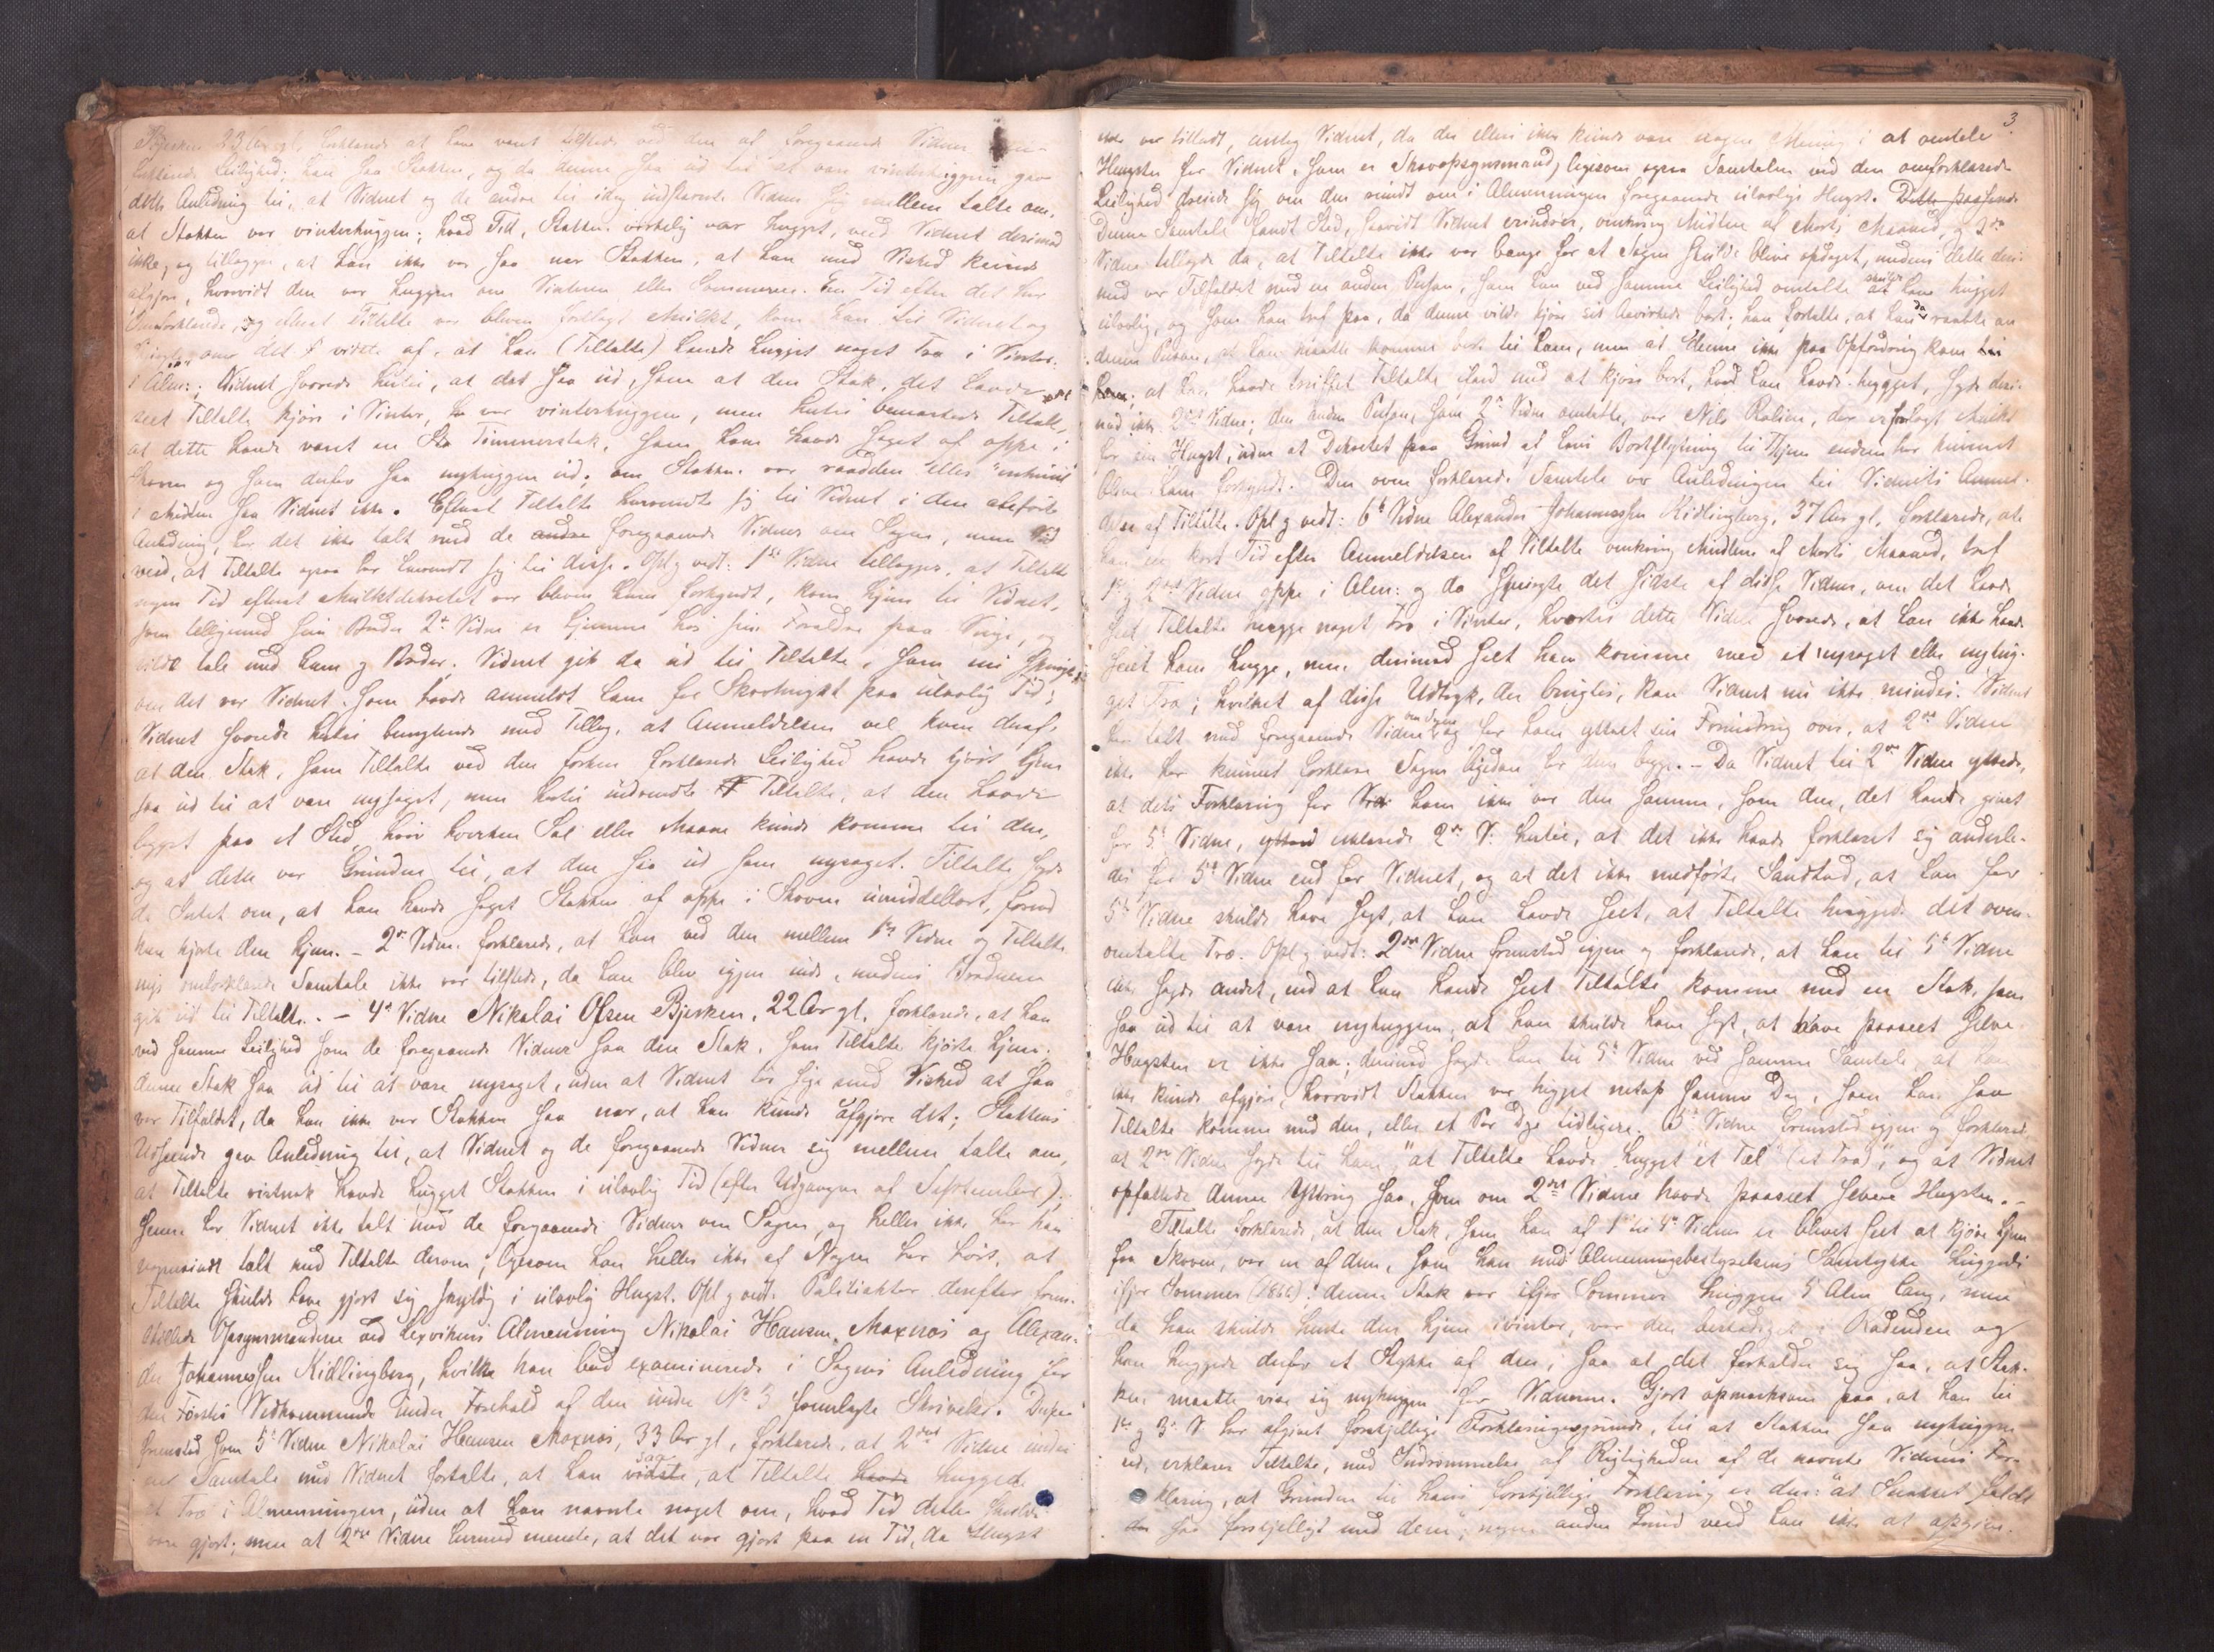 Bjerken 23 Aar gl. forklarede at have været tilstede ved den af foregaaende Vidne
forklarede Leilighed; han saa Stokken, og da denne saa ud til at være vinterhuggen gav
dette Anledning til, at Vidnet og de andre til idag indstævnte Vidner sig mellem talte om,
at Stokken var vinterhuggen; hvad Tid, Stokken virkelig var hugget, veed Vidnet derimod
ikke, og tillægger, at han ikke var saa nær Stokken, at han med Vished kunde
afgjøre, hvorvidt den var huggen om Vinteren eller Sommeren. En Tid efter det her
Omforklarede, og efterat Tiltalte var bleven forelagt Mulkt, kom han til Vidnet og
om det vidste af, at han (Tiltalte) havde hugget noget Træ i Vinter
i Alm:; Vidnet svarede hertil, at det saa ud, som at den Stok, det havde
seet Tiltalte kjøre i Vinter, var vinterhuggen, men hertil bemærkede Tiltalte,
at dette havde været en Tømmerstok, som han havde saget af oppe i
Skoven og som derfor saa nyhuggen ud; om Stokken var raadden eller
i Midten saa Vidnet ikke. Efterat Tiltalte henvendte sig til Vidnet i den anførte
Anledning, har det ikke talt med de andre foregaaende Vidner om Sagen, men
veed, at Tiltalte ogsaa har henvendt sig til disse. Opl. g vedt: 1ste Vidne tillægger, at Tiltalte
nogen Tid efterat Mulktdekretet var bleven ham forkyndt, kom hjem til Vidnet,
som tilligemed sin Broder 2det Vidne er hjemme hos sine Forældre paa, og
vilde tale med ham g Broder; Vidnet gik da ud til Tiltalte, som nu spurgte,
om det var Vidnet, som havde anmeldt ham for Skovhugst paa ulovlig Tid;
Vidnet svarede hertil benegtende med Tillæg, at Anmeldelsen vel kom deraf,
at den Stok, som Tiltalte ved den forhen forklarede Leilighed havde kjørt hjem
saa ud til at være nysaget, men hertil indvendte Tiltalte, at den havde
ligget paa et Sted, hvor hverken Sol eller Maane kunde komme til den,
og at dette var Grunden til, at den saa ud som nysaget. Tiltalte sagde
da Intet om, at han havde saget Stokken af oppe i Skoven umiddelbart, forend
han kjørte den hjem. – 2det Vidne forklarede, at han ved den mellem 1ste Vidne og Tiltalte
nys omforklarede Samtale ikke var tilstede, da han blev igjen inde, medens Broderen
gik ud til Tiltalte. – 4de Vidne Nikolai Olsen Bjerken, 22 Aar gl. forklarede, at han
ved samme Leilighed som de foregaaende Vidner saa den Stok, som Tiltalte kjørte hjem;
denne Stok saa ud til at være nysaget, uden at Vidnet tør sige med Vished at saa
var Tilfældet, da han ikke var Stokken saa nær, at han kunde afgjøre det; Stokkens
Udseende gav Anledning til, at Vidnet og de foregaaende Vidner sig mellem talte om,
at Tiltalte vistnok havde hugget Stokken i ulovlig Tid (efter Udgangen af September);
senere har Vidnet ikke talt med de foregaaende Vidner om Sagen, og heller ikke har han
nogensinde talt med Tiltalte derom; ligesom han heller ikke af Nogen har hørt, at
Tiltalte skulde have gjort sig skyldig i ulovlig Hugst. Opl g vedt. Politiaktor derefter frem-
stillede Opsynsmændene ved Lexvikens Almenning Nikolai Hansen Moxnæs og Alexan-
der Johannessen Kidlingberg, hvilke han bad examinerede i Sagens Anledning for
den Førstes Vedkommende under Forehold af den under No 3 fremlagte Skrivelse.
fremstod som 5te Vidne Nikolai Hansen Moxnæs, 33 Aar gl, forklarede, at 2det Vidne under
en Samtale med Vidnet fortalte, at han vidste, saa at Tiltalte havde huggede
et Træ i Almenningen, uden at han nævnte noget om, hvad Tid dette skulde
være gjort; men at 2det Vidne hermed mente, at det var gjort paa en Tid, da Hugst
3.
ikke var tilladt, antog Vidnet, da der ellers ikke kunde være nogen Mening i at omtale
Hugsten for Vidnet, som er Skovopsynsmand, ligesom ogsaa Samtalen ved den omforklarede
Leilighed dreiede sig om den rundt om i Almenningen foregaaende ulovlige Hugst. Dette
Denne Samtale fandt Sted, saavidt Vidnet erindrer, omkring Midten af Marts Maaned, g 2det
Vidne tilføiede da, at Tiltalte ikke var bange for at Sagen skulde blive opdaget, medens dette deri-
mod var Tilfældet med en anden Person, som han ved samme Leilighed omtalte at skulde have hugget
ulovlig, og som han traf paa, da denne vilde kjøre sit Aavirkede bort; han fortalte, at han da raabte an
denne Person, at han maatte komme bort til ham, men at Denne ikke paa Opfordring kom til
ham; at han havde truffet Tiltalte ifærd med at kjøre bort, hvad han havde hugget, sagde deri-
mod ikke 2det Vidne; den anden Person, som 2det Vidne omtalte, var Nils Rolien, der er forelagt Mulkt
for sin Hugst, uden at Dekretet paa Grund af hans Bortflytning til endnu har kunnet
blive ham forkyndt. Den oven forklarede Samtale var Anledningen til Vidnets Anmel-
delse af Tiltalte. Opl g vedt: 6te Vidne Alexander Johannessen Kidlingberg, 37 Aar gl. forklarede, at
han en kort Tid efter Anmeldelsen af Tiltalte omkring Midten af Marts Maaned, traf
1ste g 2det Vidne oppe i Alm: og da spurgte det sidste af disse Vidner, om det havde
seet Tiltalte hugge noget Træ i Vinter, hvortil dette Vidne svarede, at han ikke havde
seet ham hugge, men derimod seet ham komme med et nysaget eller nyhug-
get Træ; hvilket af disse Udtryk, der brugtes, kan Vidnet nu ikke mindes. Vidnet
har talt med foregaaende Vidne om Sagen og har ham yttret sin Forundring over, at 2det Vidne
ikke har kunnet forklare Sagen ligedan for dem begge. – Da Vidnet til 2det Vidne yttrede,
at dets Forklaring for ham ikke var den samme, som den, det havde givet
for 5te Vidne, erklærede 2det V. hertil, at det ikke havde forklaret sig anderle-
des for 5te Vidne end for Vidnet, og at det ikke medførte Sandhed, at han for
5te Vidne skulde have sagt, at han havde seet, at Tiltalte huggede det oven-
omtalte Træ. Opl g vedt: 2det Vidne fremstod igjen g forklarede, at han til 5te Vidne
ikke sagde andet, end at han havde seet Tiltalte komme med en Stok, som
saa ud til at være nyhuggen; at han skulde have sagt, at have paaseet selve
Hugsten er ikke saa; derimod sagde han til 5te Vidne ved samme Samtale, at han
ikke kunde afgjøre, hvorvidt Stokken var hugget netop samme Dag, som han saa
Tiltalte komme med den, eller et Par Dage tidligere. 5te Vidne fremstod igjen g forklarede
at 2det Vidne sagde til ham, "at Tiltalte havde hugget "et Tæl" (et Træ)", og at Vidnet
opfattede denne Yttring saa, som om 2det Vidne havde paaseet selve Hugsten. –
Tiltalte forklarede, at den Stok, som han af 1ste til 4de Vidne er blevet seet at kjøre hjem
fra Skoven, var en af dem, som han med Almenningsbestyrelsens Samtykke huggede
ifjor Sommer; denne Stok var ifjor Sommer huggen 5 Alen lang, men
da han skulde hente den hjem ivinter, var den beskadiget i Rodenden og
han huggede derfor et Stykke af den, saa at det forholder sig saa, at Stok-
ken maatte vise sig nyhuggen for Vidnerne. Gjort opmærksom paa, at han til
1ste g 3de V. har afgivet forskjellige Forklaringsgrunde, til at Stokken saa nyhuggen
ud, erklærer Tiltalte, med Indrømmelse af Rigtigheden af de nævnte Vidners For-
klaring, at Grunden til hans forskjellige Forklaring er den: "at Snakket faldt
saa forskjelligt med dem"; nogen anden Grund veed han ikke at opgive.